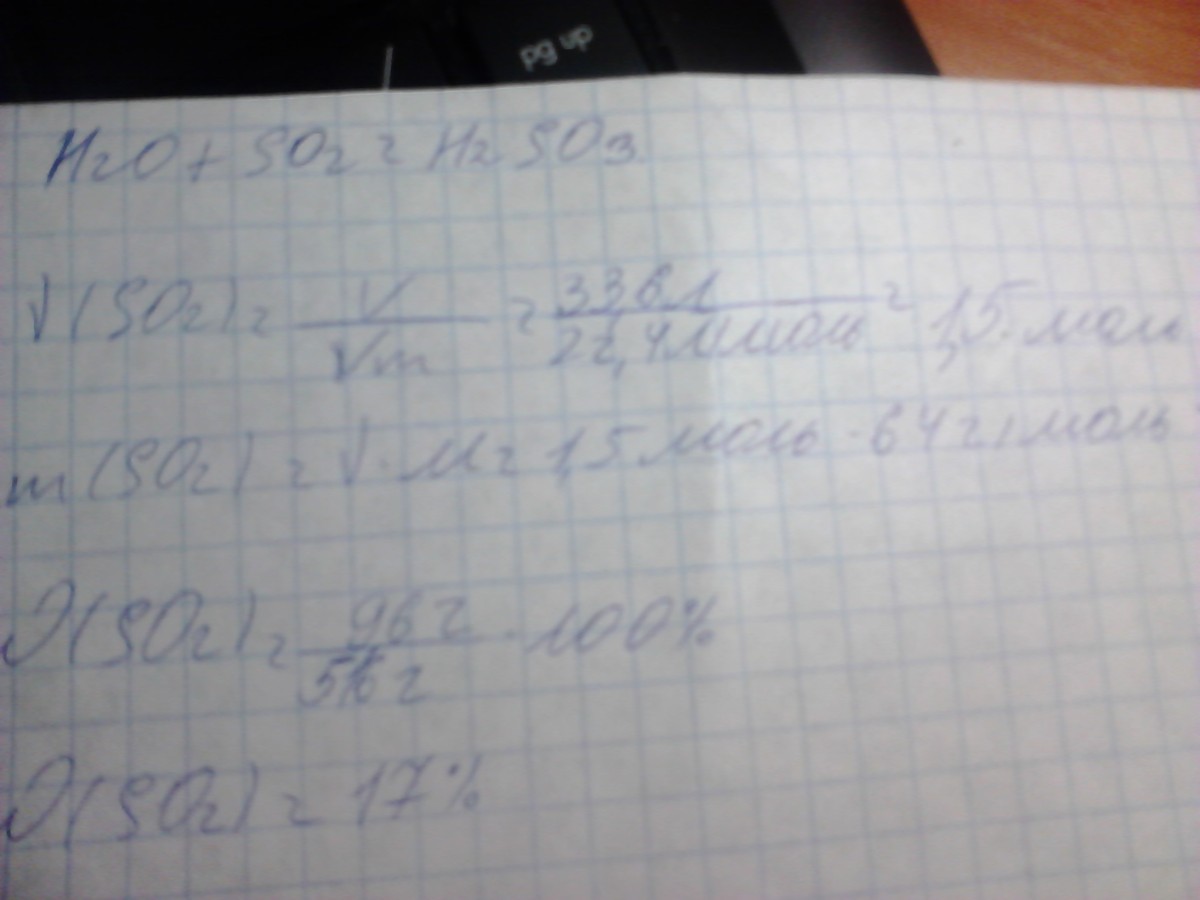 pg up
H2O + SO2 = H2SO3
ν(SO2) = V/Vm = 33,6л/22,4л/моль = 1,5 моль
m(SO2) = ν · M = 1,5 моль · 64 г/моль
ω(SO2) = 96 г / г · 100%
ω(SO2) = 17%